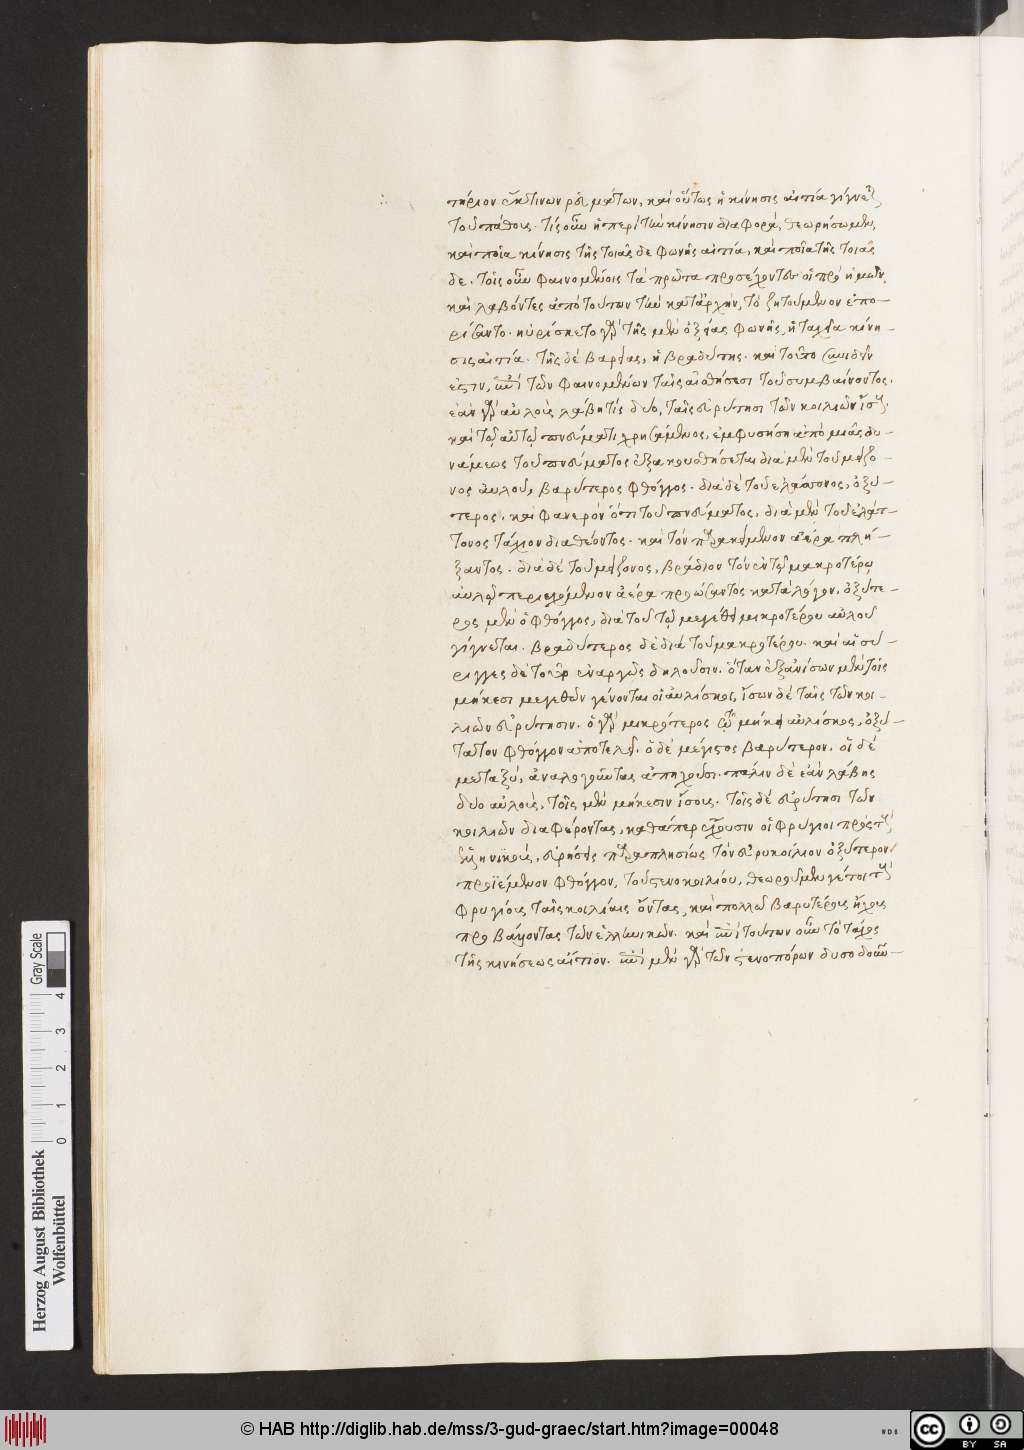 τήριον ἐκ τινων ῥευμάτων, καὶ οὕτως ἡ κίνησις αἰτία γίγνεται
τοῦ πάθους. τίς οὖν ἡ περὶ τὴν κίνησιν διαφορά, θεωρήσωμεν,
καὶ ποία κίνησις τῆς τοιᾶς δε φωνῆς αἰτία, καὶ ποία τῆς τοιᾶς
δε. τοῖς οὖν φαινομένοις τὰ πρῶτα προσέχοντες οἱ πρὸ ἡμῶν,
καὶ λαβόντες ἀπὸ τούτων τὴν καταρχήν, τὸ ζητούμενον ἐπο-
ρίσαντο. ηὑρίσκετο γὰρ τῆς μὲν ὀξείας φωνῆς, ἡ ταχεῖα κίνη-
σις αἰτία. τῆς δὲ βαρείας, ἡ βραδύτης. καὶ τοῦτο συνιδεῖν
ἐστιν, ἐπὶ τῶν φαινομένων ταῖς αἰσθήσεσι τοῦ συμβαίνοντος.
ἐὰν γὰρ αὐλοὺς λάβῃ τίς δυο, ταῖς εὐρύτησι τῶν κοιλιῶν ἴσους.
καὶ τῷ αὐτῷ πνεύματι χρησάμενος, ἐμφυσήσῃ ἀπὸ μιᾶς δυ-
νάμεως τοῦ πνεύματος ἐξακουσθήσεται διὰ μὲν τοῦ μείζο-
νος αὐλοῦ, βαρύτερος φθόγγος. διὰ δὲ τοῦ ἐλάσσονος, ὀξύ-
τερος. καὶ φανερὸν ὅτι τοῦ πνεύματος, διὰ μὲν τοῦ ἐλάτ-
τονος τάχιον διαθέοντος. καὶ τὸν παρακείμενον ἀέρα πλή-
ξαντος. διὰ δὲ τοῦ μείζονος, βράδιον τὸν ἐν τῷ μακροτέρῳ
αὐλῷ περιεχόμενον ἀέρα προώσαντός κατὰ λόγον, ὀξύτε-
ρος μὲν ὁ φθόγγος, διὰ τοῦ τῷ μεγέθει μικροτέρου αὐλοῦ
γίγνεται. βραδύτερος δὲ διὰ τοῦ μακροτέρου. καὶ αἱ σύ-
ριγγες δὲ τοῦτο ἐναργῶς δηλοῦσιν. ὅταν ἐξ ἀνίσων μὲν τοῖς
μήκεσι μεγεθῶν γένονται οἱ αὐλίσκοι, ἴσων δὲ ταῖς τῶν κοι-
λιῶν εὐρύτησιν. ὁ γὰρ μικρότερος τῷ μήκει αὐλίσκος, ὀξύ-
τατον φθόγγον ἀποτελεῖ. ὁ δὲ μέγιστος βαρύτερον. οἱ δὲ
μεταξύ, ἀναλογοῦντας ἀπηχοῦσι. πάλιν δὲ ἐὰν λάβῃς
δυο αὐλοὺς, τοῖς μὲν μήκεσιν ἴσους. τοῖς δὲ εὐρύτησι τῶν
κοιλιῶν διαφέροντας, καθάπερ ἔχουσιν οἱ φρύγιοι πρὸς τοὺς
ἑλληνικοὺς, εὑρήσεις παραπλησίως τὸν εὐρυκοίλιον ὀξύτερον
προϊέμενον φθόγγον, τοῦ στενοκοιλίου, θεωροῦμεν γέ τοι τοὺς
φρυγίους ταῖς κοιλίαις ὄντας, καὶ πολλῷ βαρυτέρους ἤχους
προβάλλοντας τῶν ἑλληνικῶν. καὶ ἐπὶ τούτων οὖν τὸ τάχος
τῆς κινήσεως αἴτιον. ἐπὶ μὲν γὰρ τῶν στενοπόρων δυσοδοῦν-
Herzog August Bibliothek
Wolfenbüttel
0 1 2 3 4
Gray Scale
© HAB http://diglib.hab.de/mss/3-gud-graec/start.htm?image=00048
WDB
cc BY SA